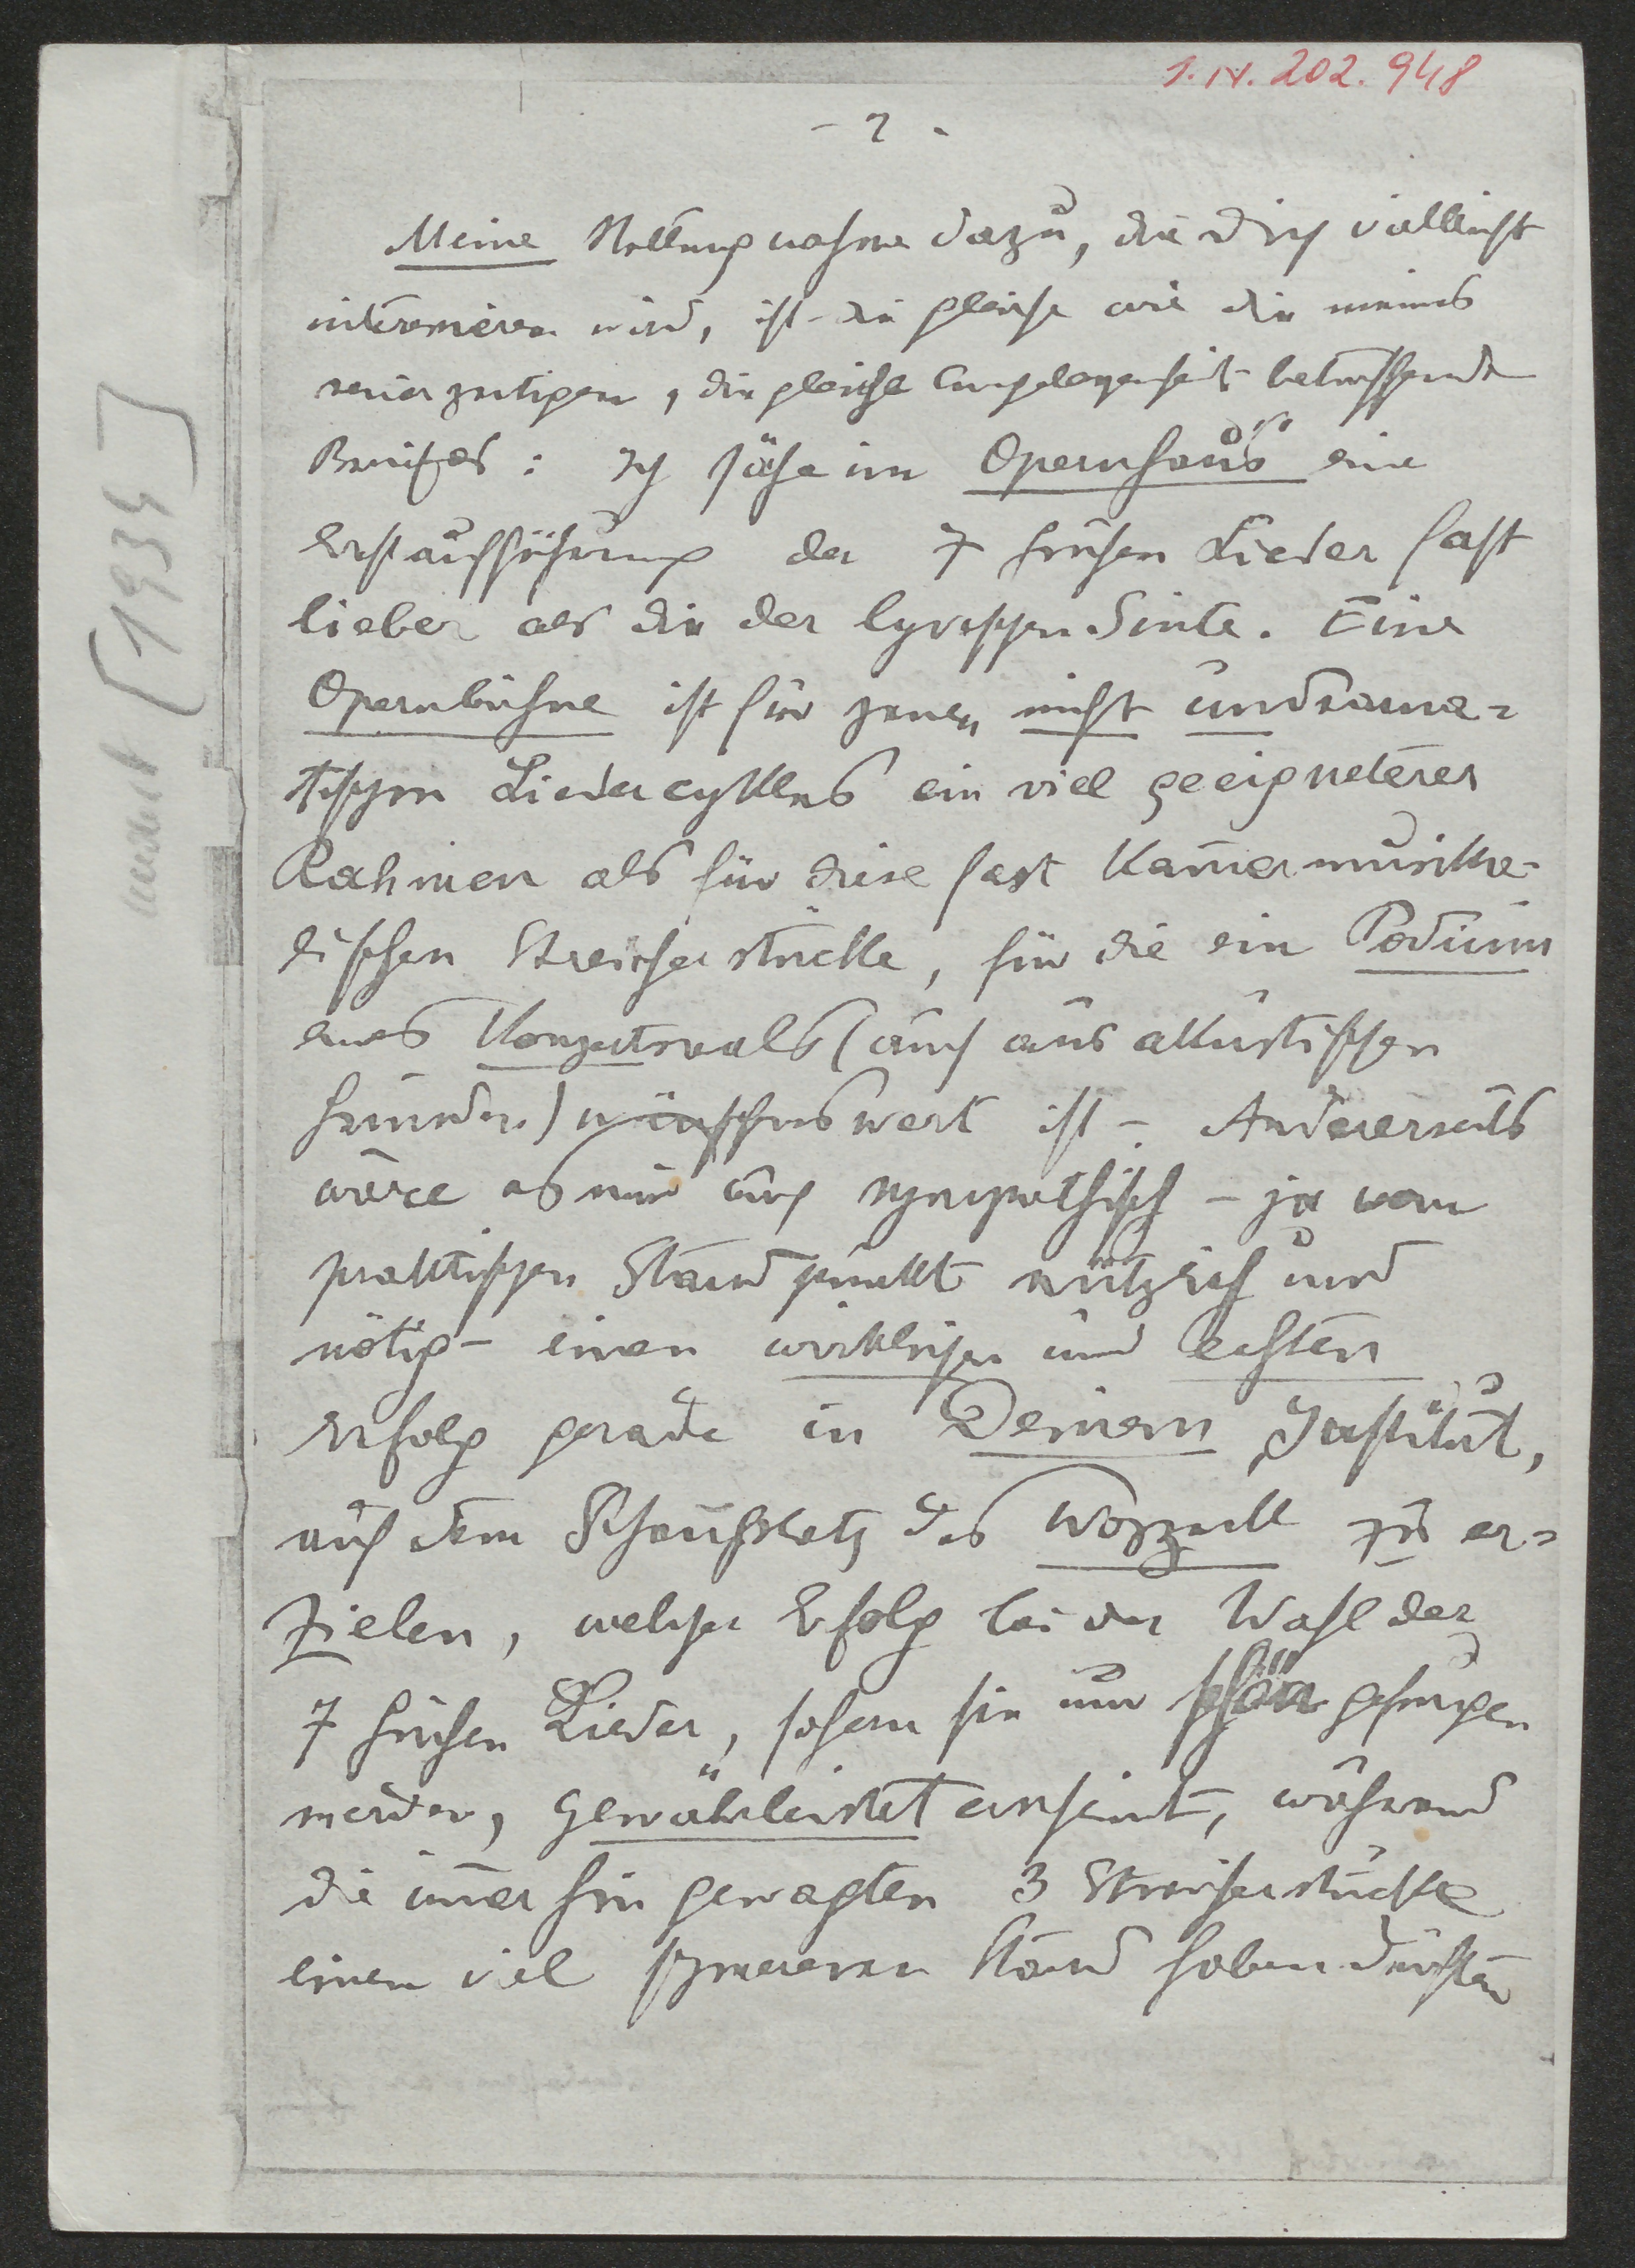 I.N. 202.948
- 2 -
Meine Stellungnahme dazu, die Dich vielleicht
interessieren wird, ist die gleiche wie die meines
seinerzeitigen, die gleiche Angelegenheit betreffenden
Briefes: Ich sähe im Opernhaus eine
Erstaufführung der 7 frühen Lieder fast
lieber als die der lyrischen Suite. Eine
Opernbühne ist für jenen nicht undrama=
tischen Liedercyklus ein viel geeigneterer
Rahmen als für diese fast kam̅ermusika-
lischen Streicherstücke, für die ein Podium
eines Konzertsaals (auch aus akustischen
Gründen) wünschenswert ist -. Andererseits
wäre es mir auch sympathisch - ja vom
praktischen Standpunkt nützlich und
nötig - einen wirklichen und echten
Erfolg gerade in Deinem Institut,
auf dem Schauplatz des Wozzeck zu er=
zielen, welcher Erfolg bei der Wahl der
7 frühen Lieder, sofern sie nur schön gesungen
werden, gewährleistet erscheint, während
die im̅erhin gewagten 3 Streicherstücke
einen viel schwereren Stand haben dürften
[1934]